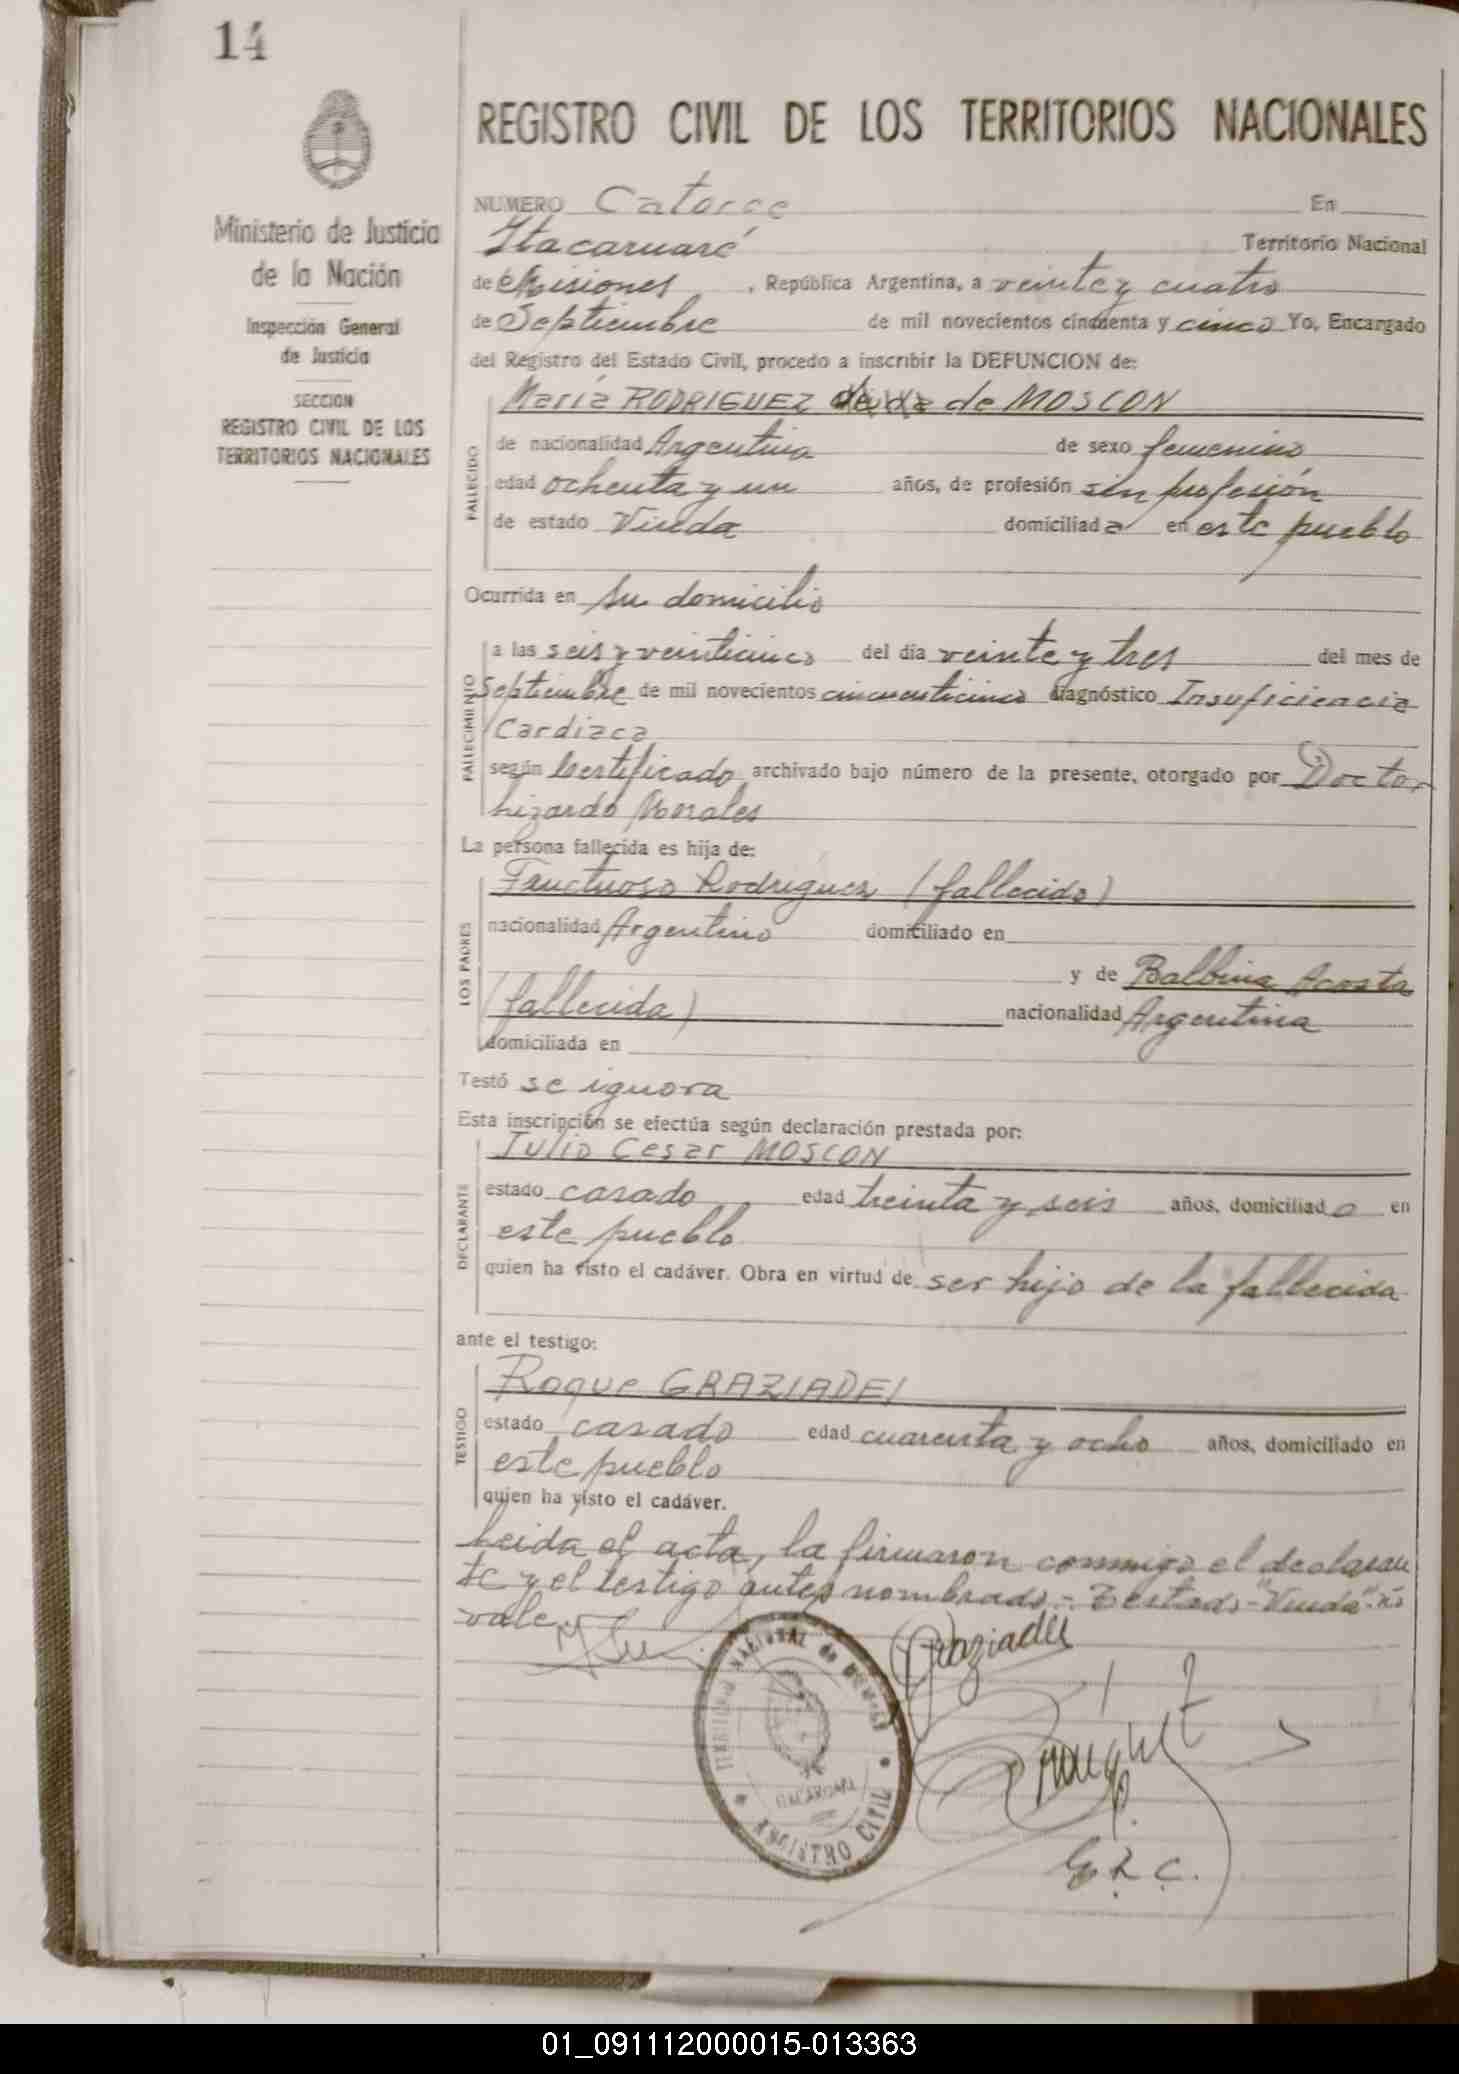 14
REGISTRO CIVIL DE LOS TERRITORIOS NACIONALES
Ministerio de Justicia
de la Nación
Inspección General
de Justicia
SECCION
REGISTRO CIVIL DE LOS
TERRITORIOS NACIONALES
NUMERO Catorce En
Itacaruaré Territorio Nacional
de Misiones, República Argentina, a veinte y cuatro
de Septiembre de mil novecientos cincuenta y cinco Yo, Encargado
del Registro del Estado Civil, procedo a inscribir la DEFUNCION de:
María RODRIGUEZ de MOSCON
FALLECIDO
de nacionalidad Argentina de sexo femenino
edad ochenta y un años, de profesión sin profesión
de estado Viuda domiciliada en este pueblo
Ocurrida en su domicilio
FALLECIMIENTO
a las seis y veinticinco del día veinte y tres del mes de
Septiembre de mil novecientos cincuenticinco diagnóstico Insuficiencia
Cardiaca
según Certificado archivado bajo número de la presente, otorgado por Doctor
Lizardo Morales
La persona fallecida es hija de:
LOS PADRES
Fructuoso Rodriguez (fallecido)
nacionalidad Argentino domiciliado en
y de Balbina Acosta
(fallecida) nacionalidad Argentina
domiciliada en
Testó se ignora
Esta inscripción se efectúa según declaración prestada por:
DECLARANTE
Julio Cesar MOSCON
estado casado edad treinta y seis años, domiciliado en
este pueblo
quien ha visto el cadáver. Obra en virtud de ser hijo de la fallecida
ante el testigo:
TESTIGO
Roque GRAZIADEI
estado casado edad cuarenta y ocho años, domiciliado en
este pueblo
quien ha visto el cadáver.
Leida el acta, la firmaron conmigo el declaran
te y el testigo antes nombrado.- Testado-"Viuda"-no
vale
Graziadei
TERRITORIO NACIONAL de MISIONES
ITACARUARE
REGISTRO CIVIL
E.R.C.
01_091112000015-013363